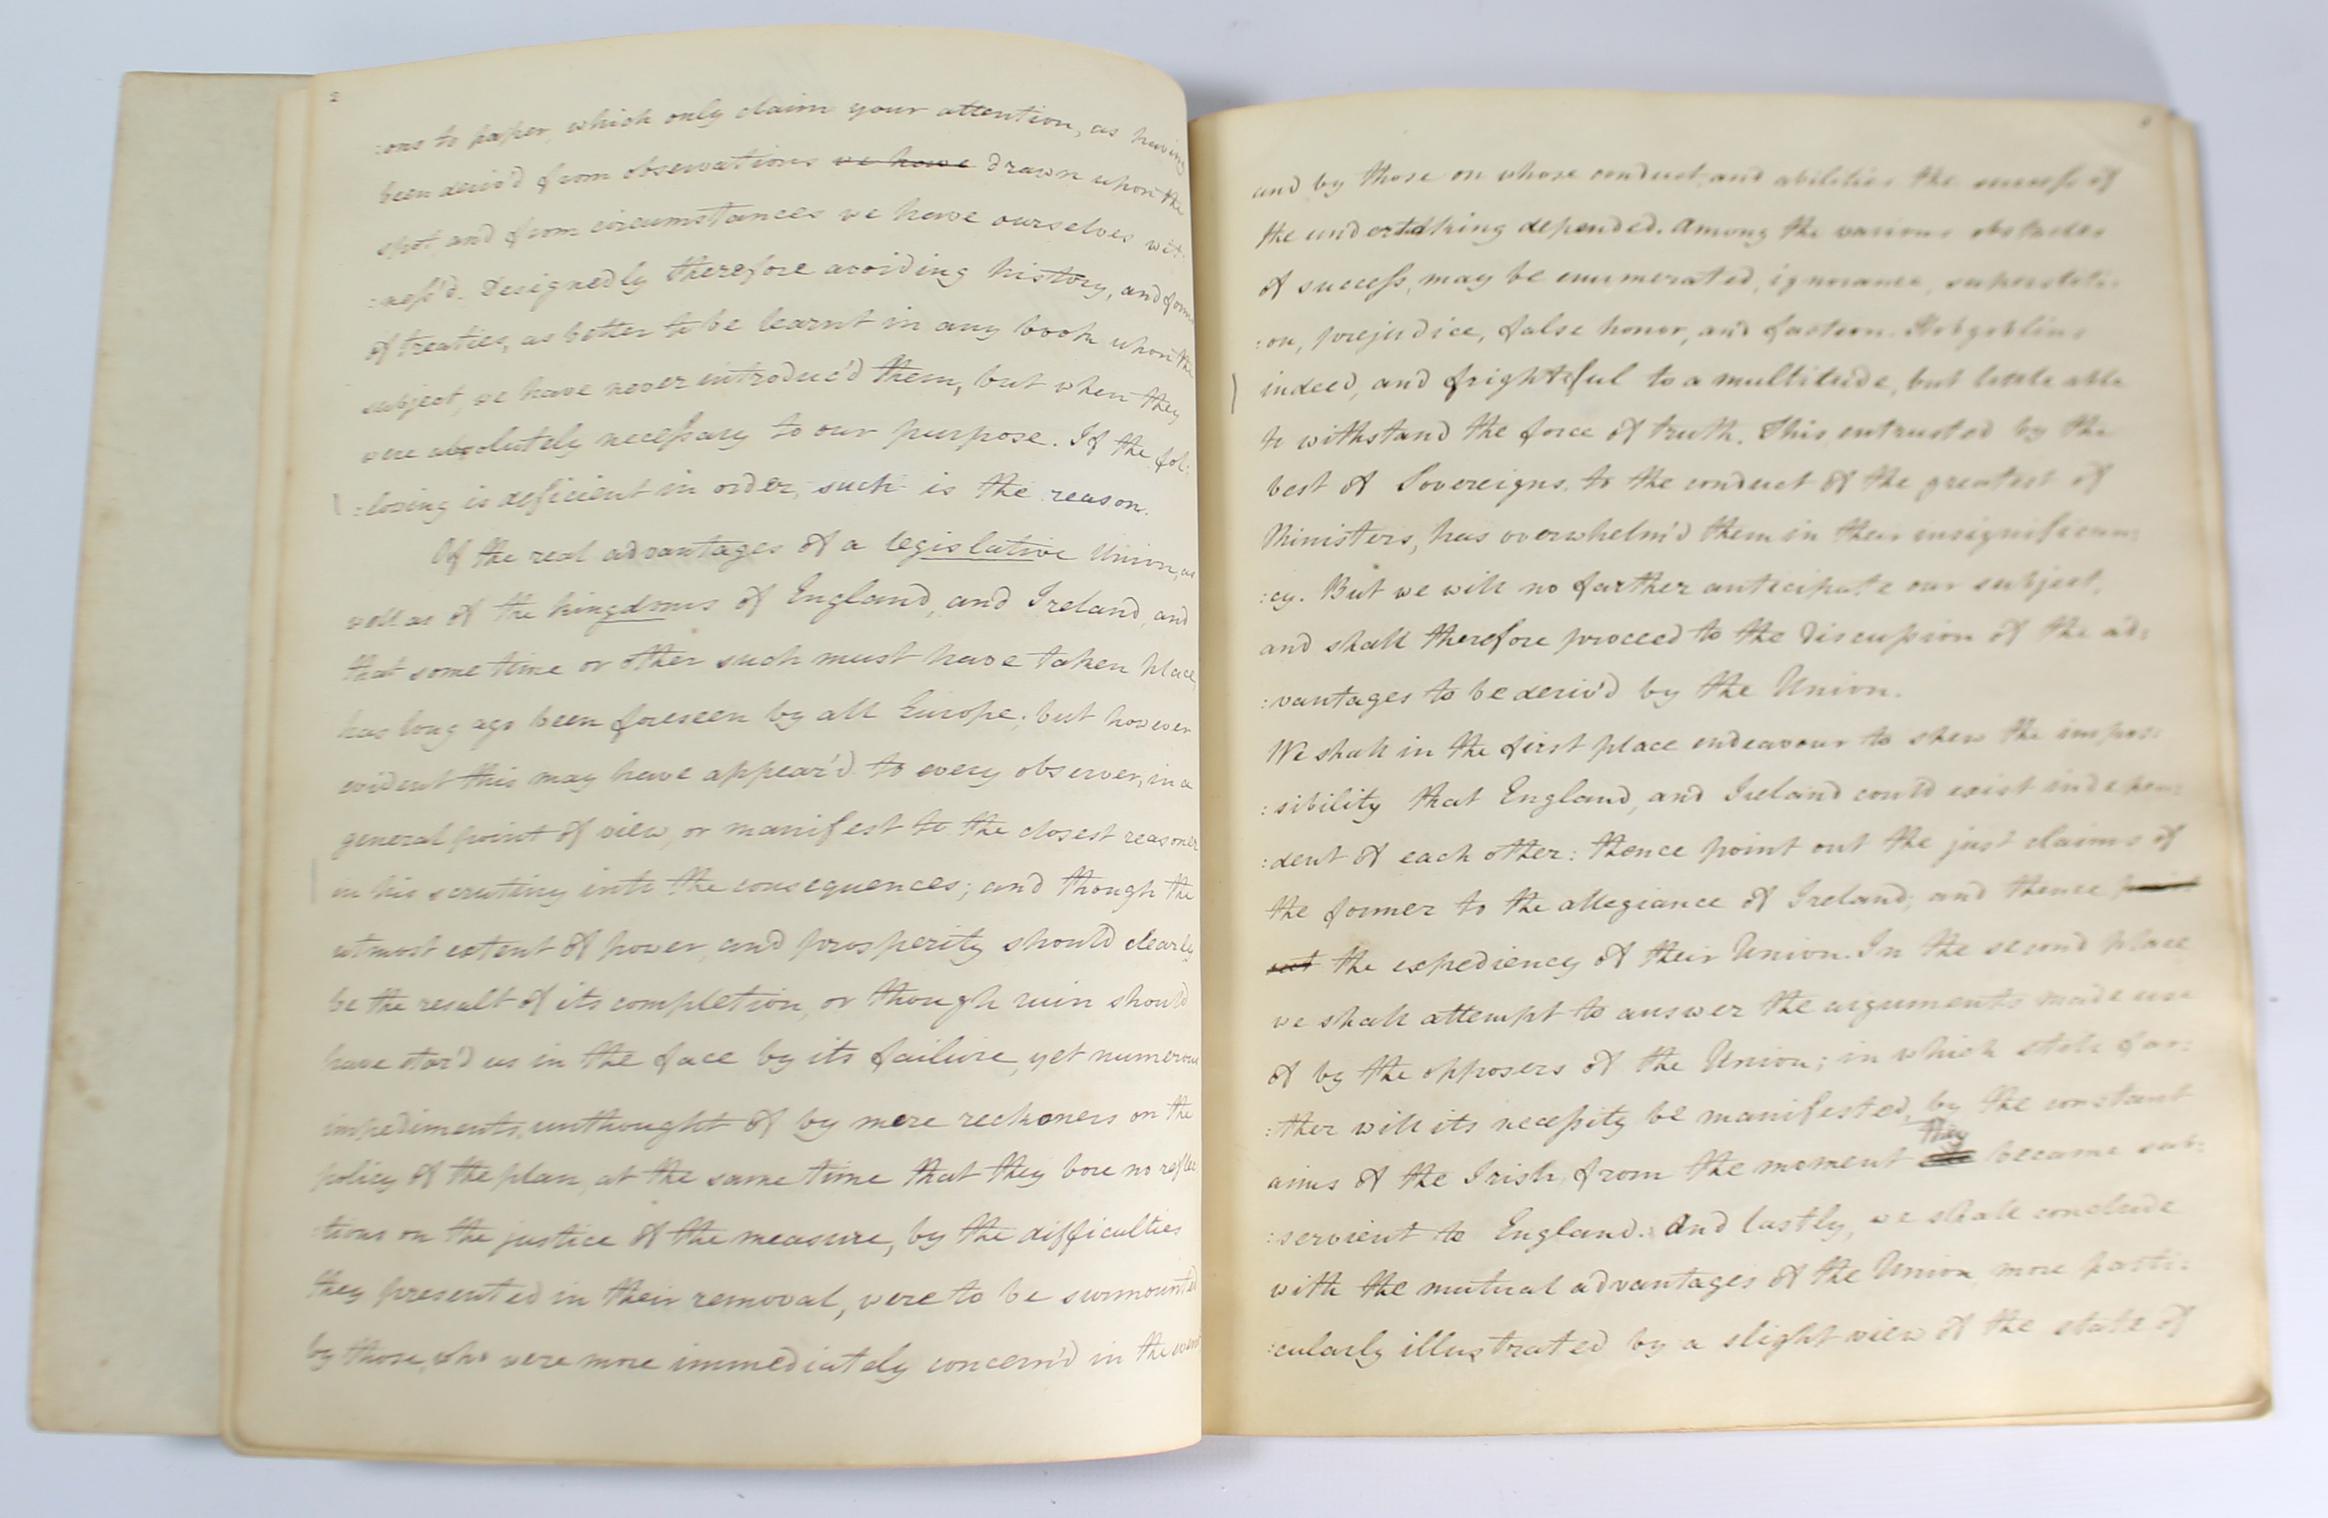 2
:ons to paper, which only claim your attention, as having
been deriv'd from observations we have drawn upon the
spot, and from circumstances we have ourselves wit:
:ness'd. Designedly therefore avoiding history, and forms
of treaties, as better to be learnt in any book upon the
subject, we have never introduc'd them, but when they
were absolutely necessary to our purpose. If the fol:
:lowing is deficient in order, such is the reason.
Of the real advantages of a legislative Union, as
well as of the kingdoms of England, and Ireland, and
that some time or other such must have taken place,
has long ago been foreseen by all Europe; but however
evident this may have appear'd to every observer, in a
general point of view, or manifest to the closest reasoner
in his scrutiny into the consequences; and though the
utmost extent of power, and prosperity should clearly
be the result of its completion, or though ruin should
have star'd us in the face by its failure, yet numerous
impediments, unthought of by mere reckoners on the
policy of the plan, at the same time that they bore no reflec
:tions on the justice of the measure, by the difficulties
they presented in their removal, were to be surmounted
by those, who were more immediately concern'd in the event
and by those on whose conduct, and abilities the success of
the undertaking depended. Among the various obstacles
of success, may be enumerated, ignorance, superstiti:
:on, prejudice, false honor, and faction. Hobgoblins
indeed, and frightful to a multitude, but little able
to withstand the force of truth. This, entrusted by the
best of Sovereigns, to the conduct of the greatest of
Ministers, has overwhelm'd them in their insignifican:
:cy. But we will no farther anticipate our subject,
and shall therefore proceed to the discussion of the ad:
:vantages to be deriv'd by the Union.
We shall in the first place endeavour to shew the impos:
:sibility that England, and Ireland could exist indepen:
:dent of each other: thence point out the just claims of
the former to the allegiance of Ireland; and thence point
out the expediency of their Union. In the second place
we shall attempt to answer the arguments made use
of by the opposers of the Union; in which still far:
:ther will its necessity be manifested, by the constant
aims of the Irish, from the moment they became sub:
:servient to England. And lastly, we shall conclude
with the mutual advantages of the Union more parti:
:cularly illustrated by a slight view of the state of